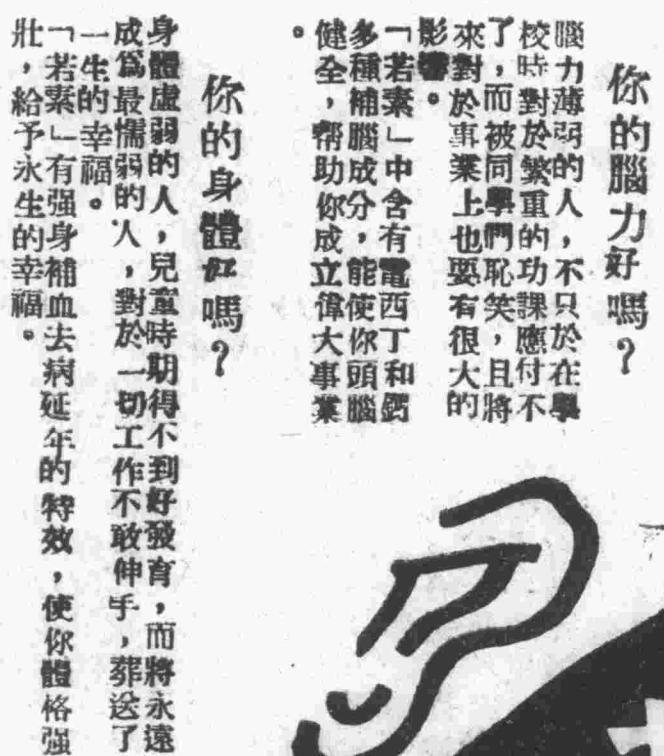 你的腦力好嗎？
腦力薄弱的人，不只於在學
校時對於繁重的功課應付不
了，而被同學們恥笑，且將
來對於事業上也要有很大的
影響。
「若素」中含有電西丁和鈣
多種補腦成分，能使你頭腦
健全，帮助你成立偉大事業
。
你的身體好嗎？
身體虛弱的人，兒童時期得不到好發育，而將永遠
成爲最懦弱的人，對於一切工作不敢伸手，葬送了
一生的幸福。
「若素」有强身補血去病延年的特效，使你體格强
壯，給予永生的幸福。